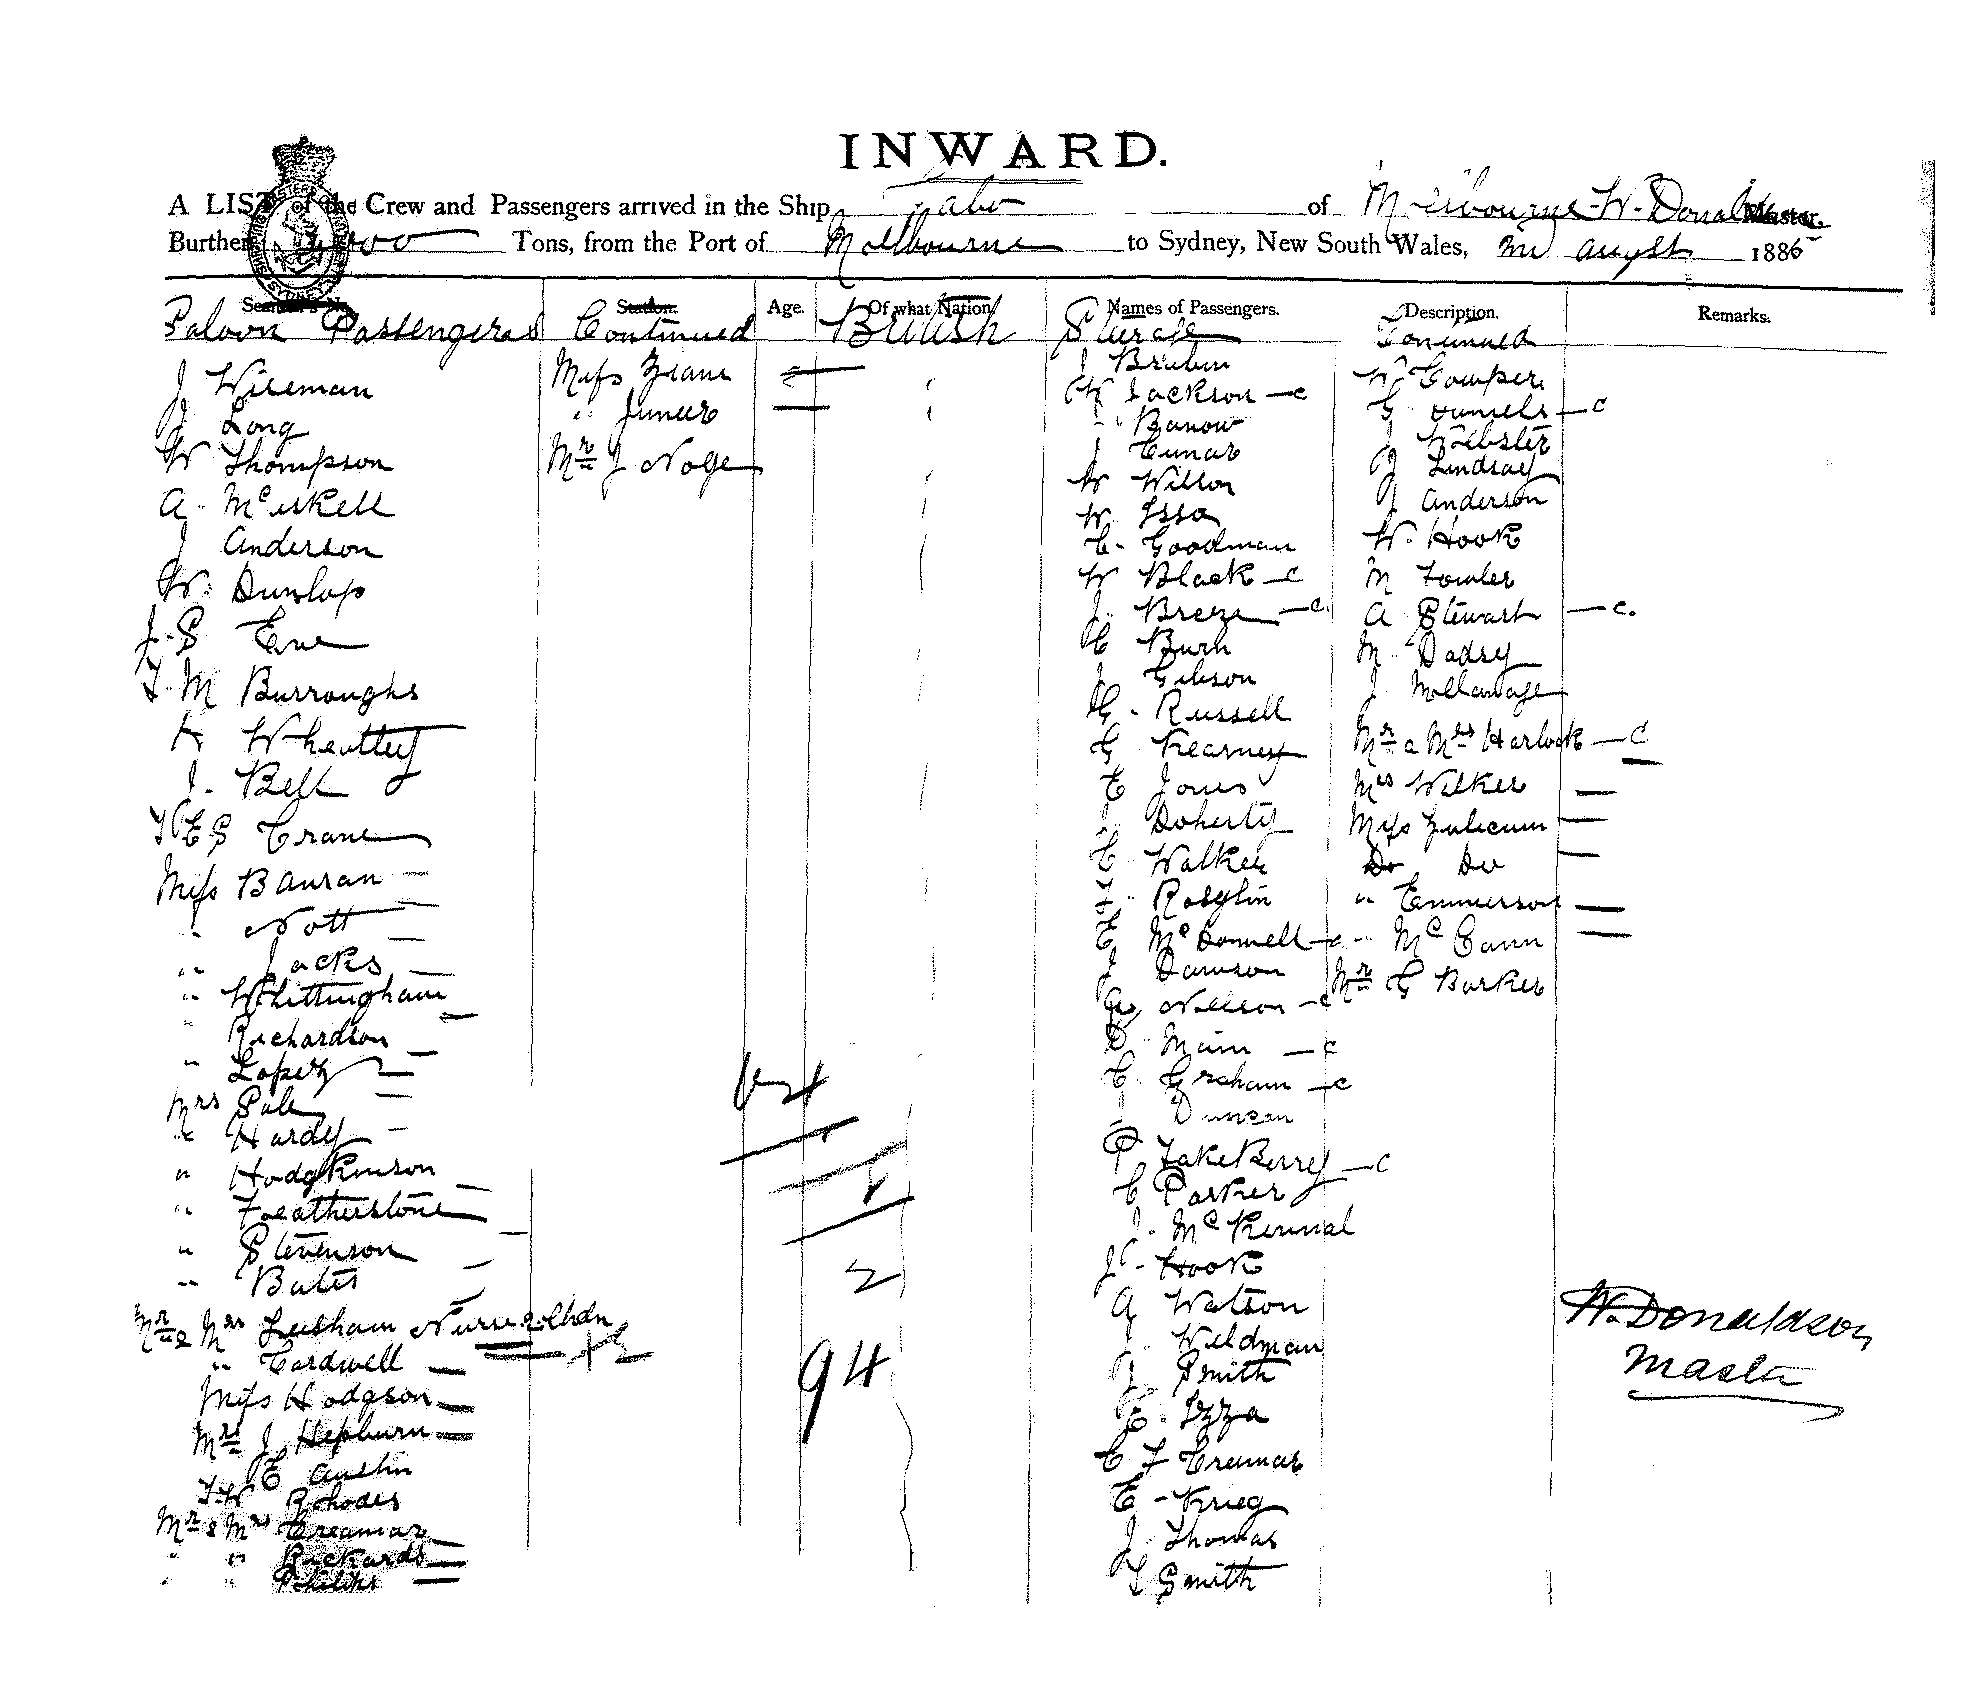 INWARD.
A LIST of the Crew and Passengers arrived in the Ship of Melbourne W. Donaldson Master.
Burthen Tons, from the Port of Melbourne to Sydney, New South Wales, August 1886
Station. Age. Of what Nation. Names of Passengers. Description. Remarks.
Saloon Passengers Continued British Steerage Continued
J Wiseman
J Long
W Thompson
A. McAskell
J Anderson
W. Dunlop
J. S
T. M Burroughs
Wheatley
J. Bell
S Crane
Miss Bauran —
" Nott —
" Jacks —
" Whittingham —
" Richardson —
" Lopez —
Mrs Sale —
" Hardy —
" Hodgkinson —
" Featherstone —
" Stevenson —
" Bates —
Mr & Mrs Nurse & Chdn
" Cardwell —
Miss Hodgson —
Mr J Hepburn —
E Austin
T. W Rhodes
Mr & Mrs Creamar —
" " Rickards —
" " —
Miss
" Juneer
Mr J
64
2
94
J
W Jackson — c
" Barrow
J
W Willon
W. Issa
C. Goodman
W Black — c
J. Breeze — c.
C Burh
J. Gibson
G. Russell
G Kearney
C Jones
J Doherty
C. Walker
Rosglin
C McDonnell — c
J Dawson
Neilson — c
D. Main — c
C. Graham — c
J Duncan
P JakeBerry — c
C Parker
J. McKennal
J. Hook
A Watson
J. Weldman
J Smith
C. Izza
C F Creamar
C - Krieg
J. Thomas
Smith
W. Gomper
G. Daniels — c
J Webster
J Lindsay
J Anderson
W. Hook
M Fowler
A Stewart — c.
M. Dadsy
J
Mr & Mrs Harlock — c
Mrs Walker —
Miss —
Do Do —
" Emmerson —
" McCann —
Mr G Barker
W. Donaldson
Master